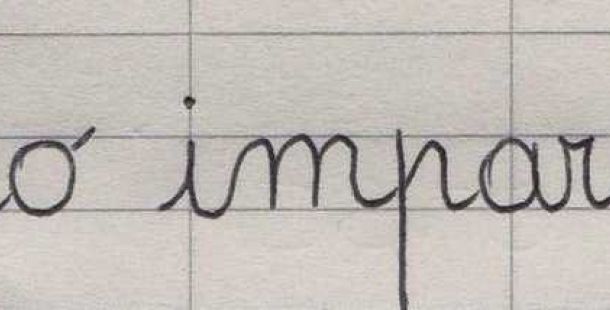 ó impar